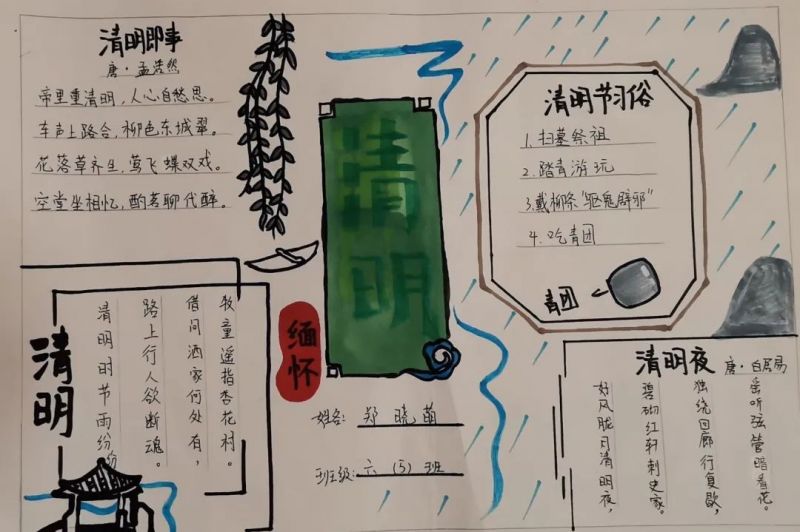 清明即事
唐·孟浩然
帝里重清明，人心自愁思。
车声上路合，柳色东城翠。
花落草齐生，莺飞蝶双戏。
空堂坐相忆，酌茗聊代醉。
清明
清明时节雨纷纷
路上行人欲断魂。
借问酒家何处有，
牧童遥指杏花村。
清明
缅怀
姓名：郑晓萌
班级：六（5）班
清明节习俗
1.扫墓祭祖
2.踏青游玩
3.戴柳条“驱鬼辟邪”
4.吃青团
青团
清明夜
唐·白居易
好风胧月清明夜，
碧砌红轩刺史家。
独绕回廊行复歇，
遥听弦管暗看花。